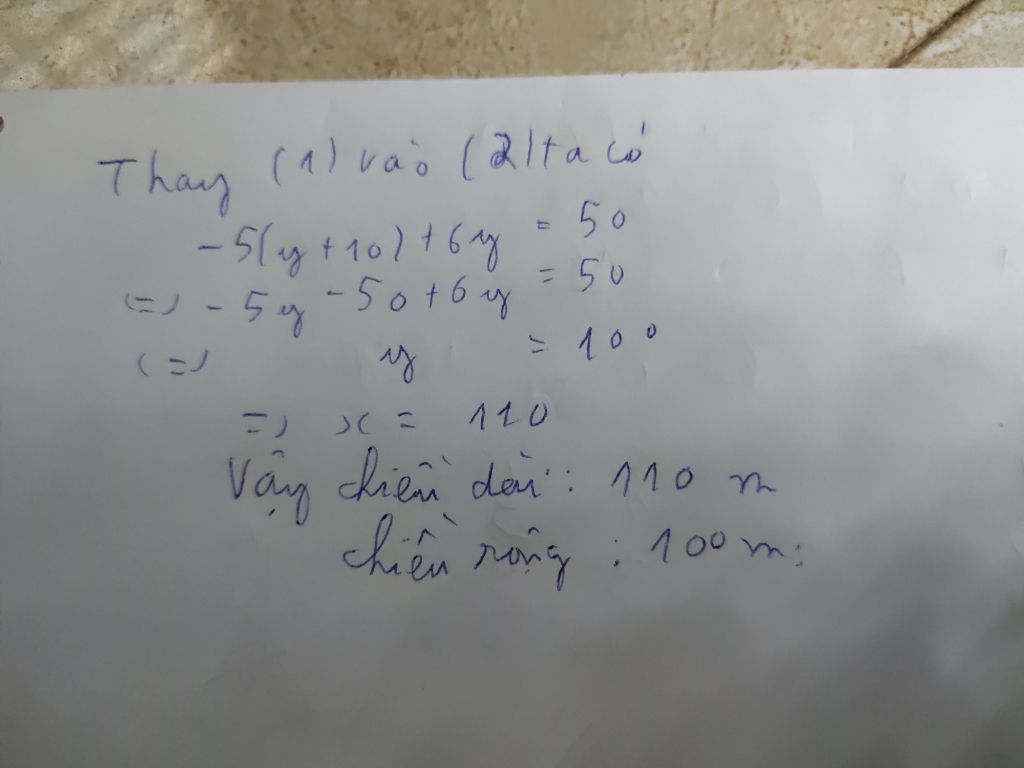 Thay (1) vào (2) ta có
-5(y+10)+6y = 50
(=) -5y -50+6y = 50
(=) y = 100
=) x = 110
Vậy chiều dài: 110 m
chiều rộng : 100 m.